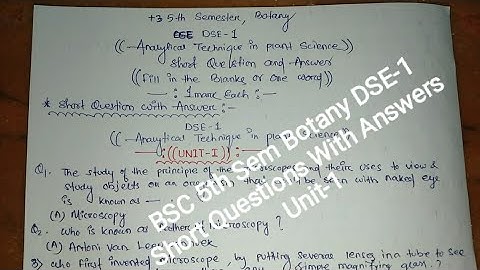 +3 5th Semester, Botany
DSE-1
((Analytical Technique in plant Science))
Short Question and Answer
((Fill in the Blanks or One word))
—: 1 mark Each :—
* Short Question with Answer:-
DSE-1
((Analytical Technique in plant Science))
—:((UNIT-I)):—
Q1. The study of the principle of the microscopes and their uses to view &
study objects on an be seen with naked eye
is known as —
(A) Microscopy
Q2. Who is known as father of Microscopy?
(A) Antoni van
3) Who first invented microscope by putting several lenses in a tube to see
simple magnifying glass?
BSC 5th Sem Botany DSE-1
Short Questions With Answers
Unit-